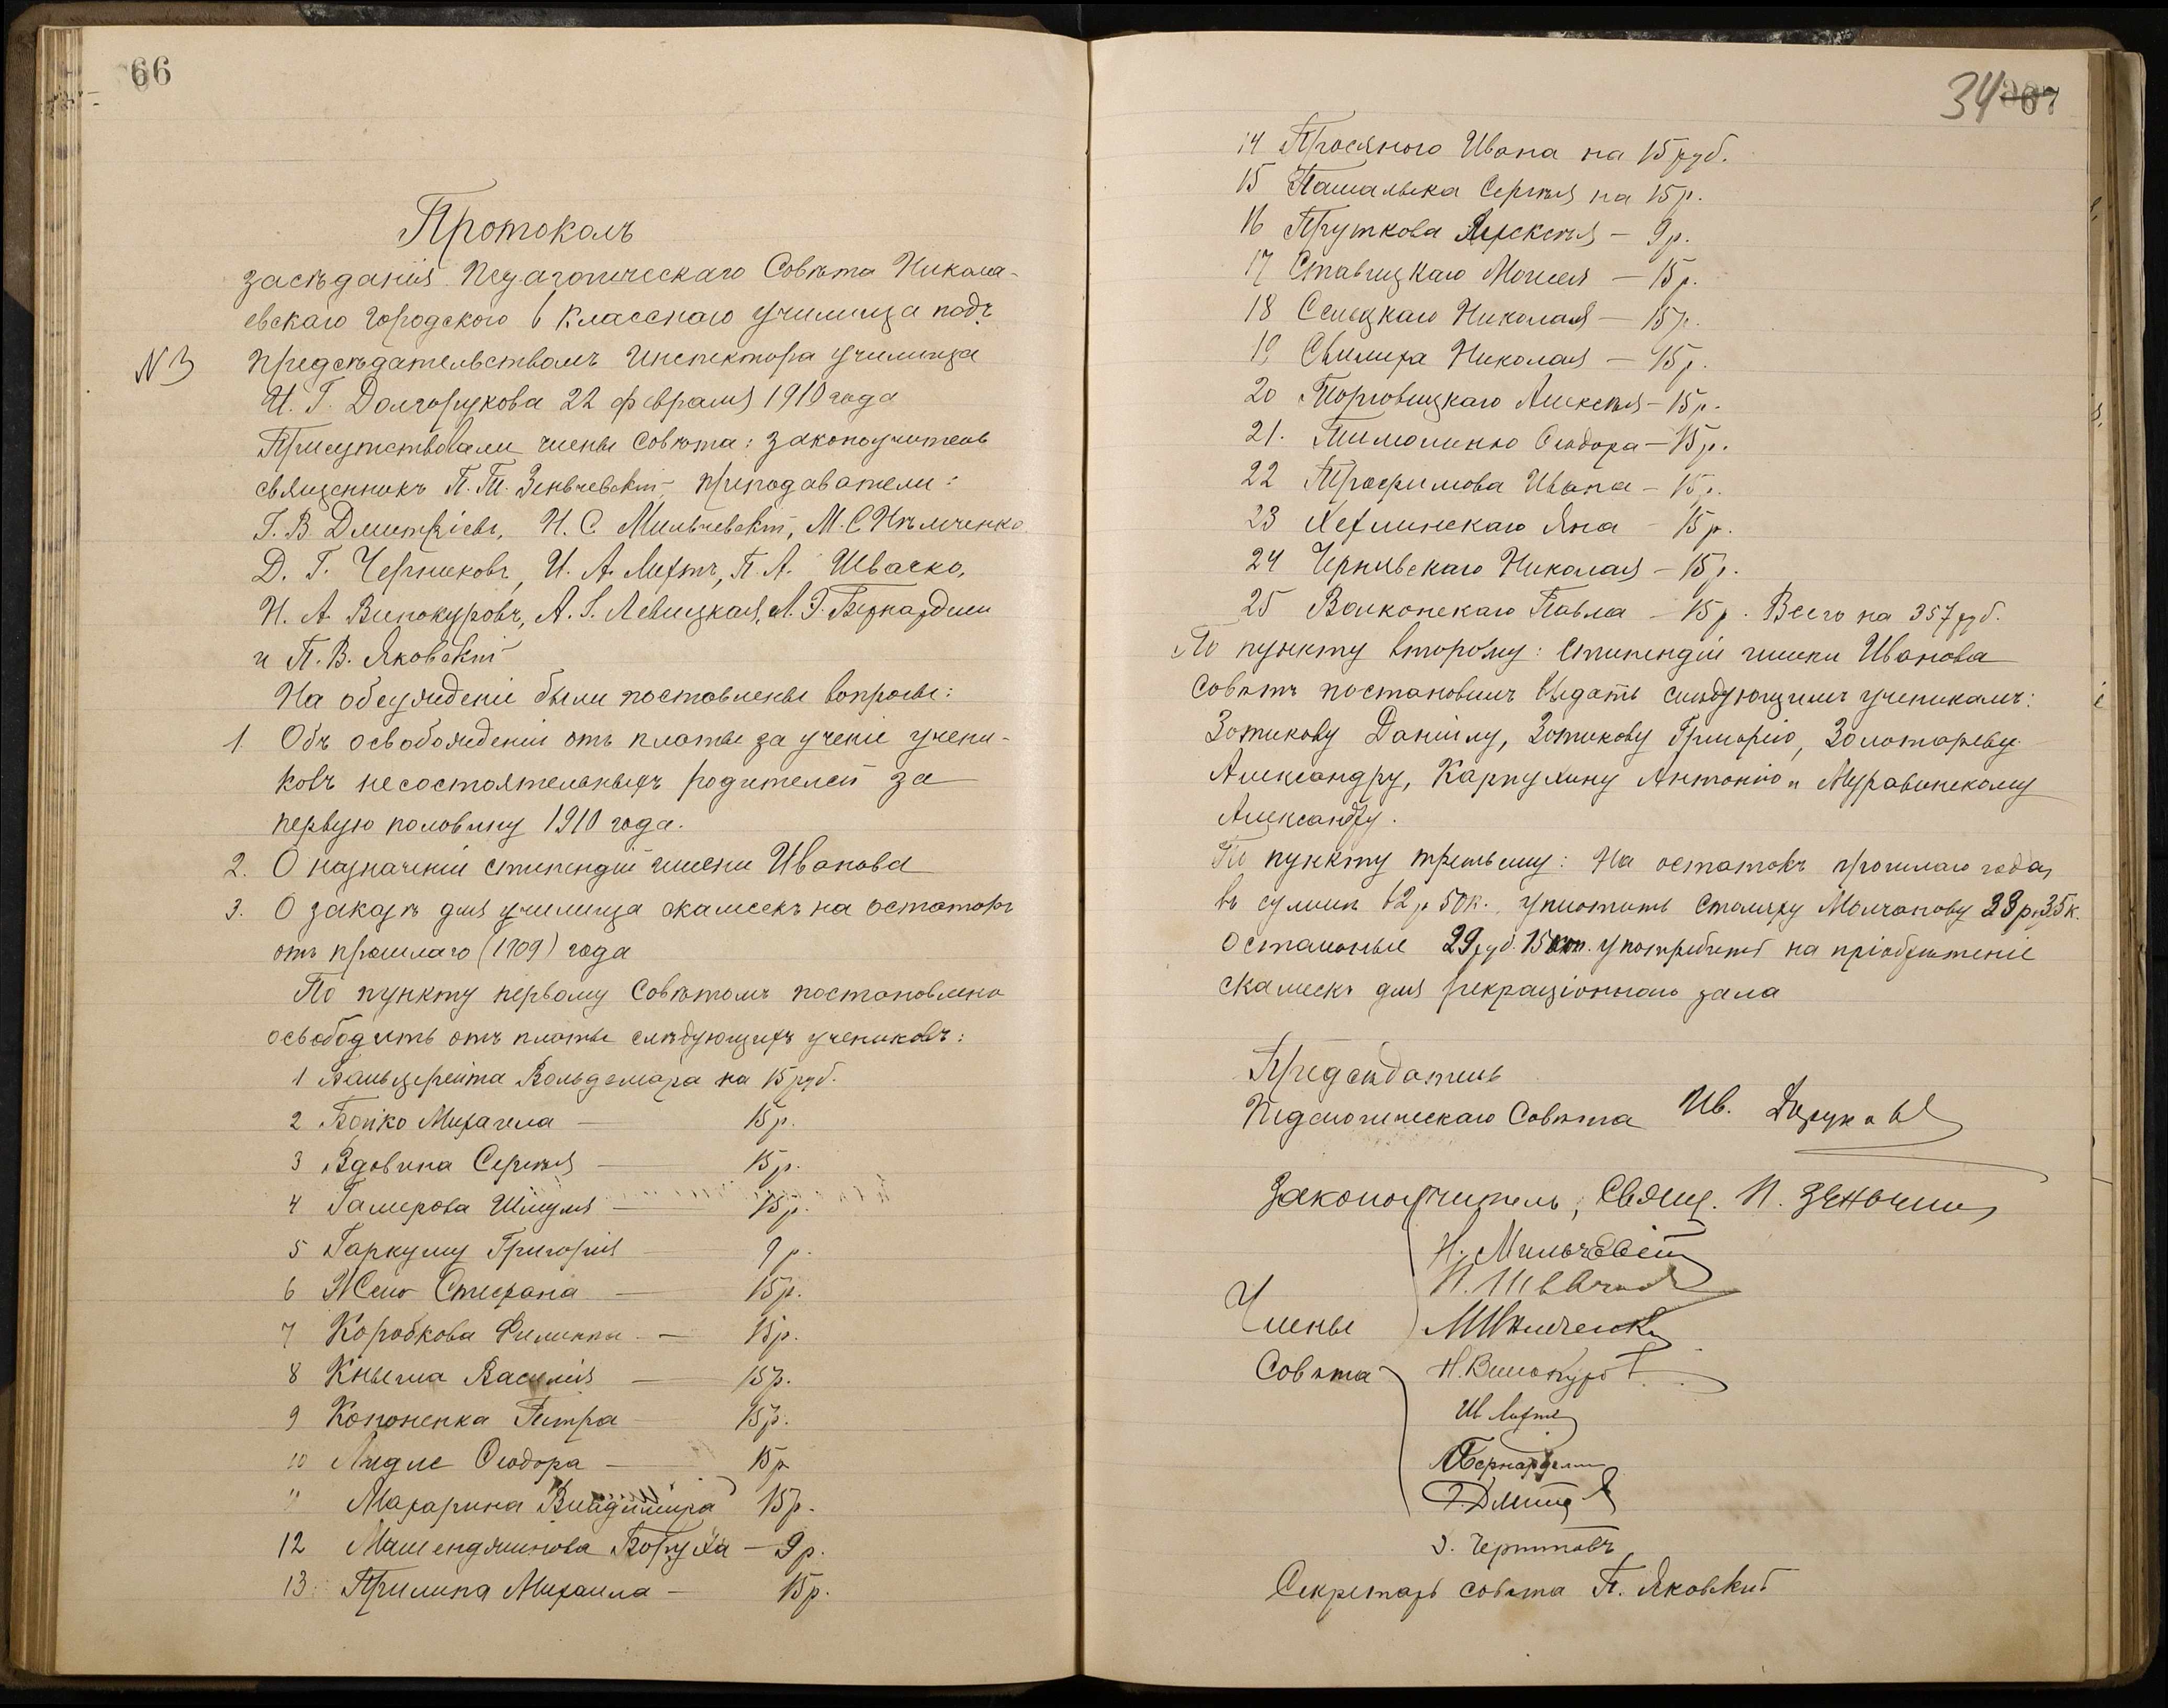 66
Протоколъ
засѣданія Педагогическаго Совѣта Никола-
евскаго городского 6 класснаго училища подъ
N 3 предсѣдательствомъ Инспектора училища
И. Г. Долгорукова 22 февраля 1910 года
Присутствовали члены совѣта: законоучитель
священникъ П. Т. Зеньчевскій, преподаватели:
Г. В. Дмитріевъ, Н. С. Мильчевскій, М. С. Ильченко
Д. Г. Черниковъ, И. А. Лихтъ, П. А. Швачко,
Н. А. Винокуровъ, А. І. Левицкая, А. Г. Бернардели
и П. В. Яковскій
На обсужденіе были поставлены вопросы:
1. Объ освобожденіи отъ платы за ученіе учени-
ковъ несостоятельныхъ родителей за
первую половину 1910 года.
2. О назначеніи стипендій имени Иванова
3. О заказѣ для училища скамеекъ на остатокъ
отъ прошлаго (1909) года
По пункту первому Совѣтомъ постановлено
освободить отъ платы слѣдующихъ учениковъ:
1 Вольдемара на 15 руб.
2 Бойко Михаила — 15 р.
3 Вдовина Сергѣя — 15 р.
4 Гамерова Шмуля — 15 р.
5 Гаркушу Григорія 9 р.
6 Стефана — 15 р.
7 Коробкова Филиппа — 15 р.
8 Василія — 15 р.
9 Кононенка Петра 15 р.
10 Лидле Ѳеодора — 15 р
11 Махарина Владиміра 15 р.
12 Боруха — 9 р.
13 Прилипа Михаила — 15 р.
34 67
14 Просяного Ивана на 15 руб.
15 Сергѣя на 15 р.
16 Пруткова Алексѣя — 9 р.
17 Ставицкаго Моисея — 15 р.
18 Сенецкаго Николая — 15 р.
19 Николая — 15 р.
20 Торговицкаго Алексѣя — 15 р.
21. Тимошенко Ѳеодора — 15 р.
22 Трофимова Ивана — 15 р.
23 Яна — 15 р.
24 Чернявскаго Николая — 15 р.
25 Волконскаго Павла — 15 р. Всего на 357 руб.
По пункту второму: Стипендіи имени Иванова
Совѣтъ постановилъ выдать слѣдующимъ ученикамъ:
Зотикову Даніилу, Зотикову Григорію, Золотареву
Александру, Карпухину Антонію и Муравинскому
Александру.
По пункту третьему: На остатокъ прошлаго года,
въ суммѣ 62 р 50 к. уплотить столяру Молчанову 33 р. 35 к.
остальные 29 руб. 15 коп. употребить на пріобрѣтеніе
скамеекъ для рекраціоннаго зала
Предсѣдатель
Педагогическаго Совѣта Ив.
Законоучитель, Свящ. П.
Члены
Совѣта
Н. Мильчевскій
П. Швачко
М Ильченко
Н. Винокуровъ
Ив Лихтъ
А Бернардели
Г. Дмитріевъ
Д. Черниковъ
Секретарь совѣта П. Яковскій